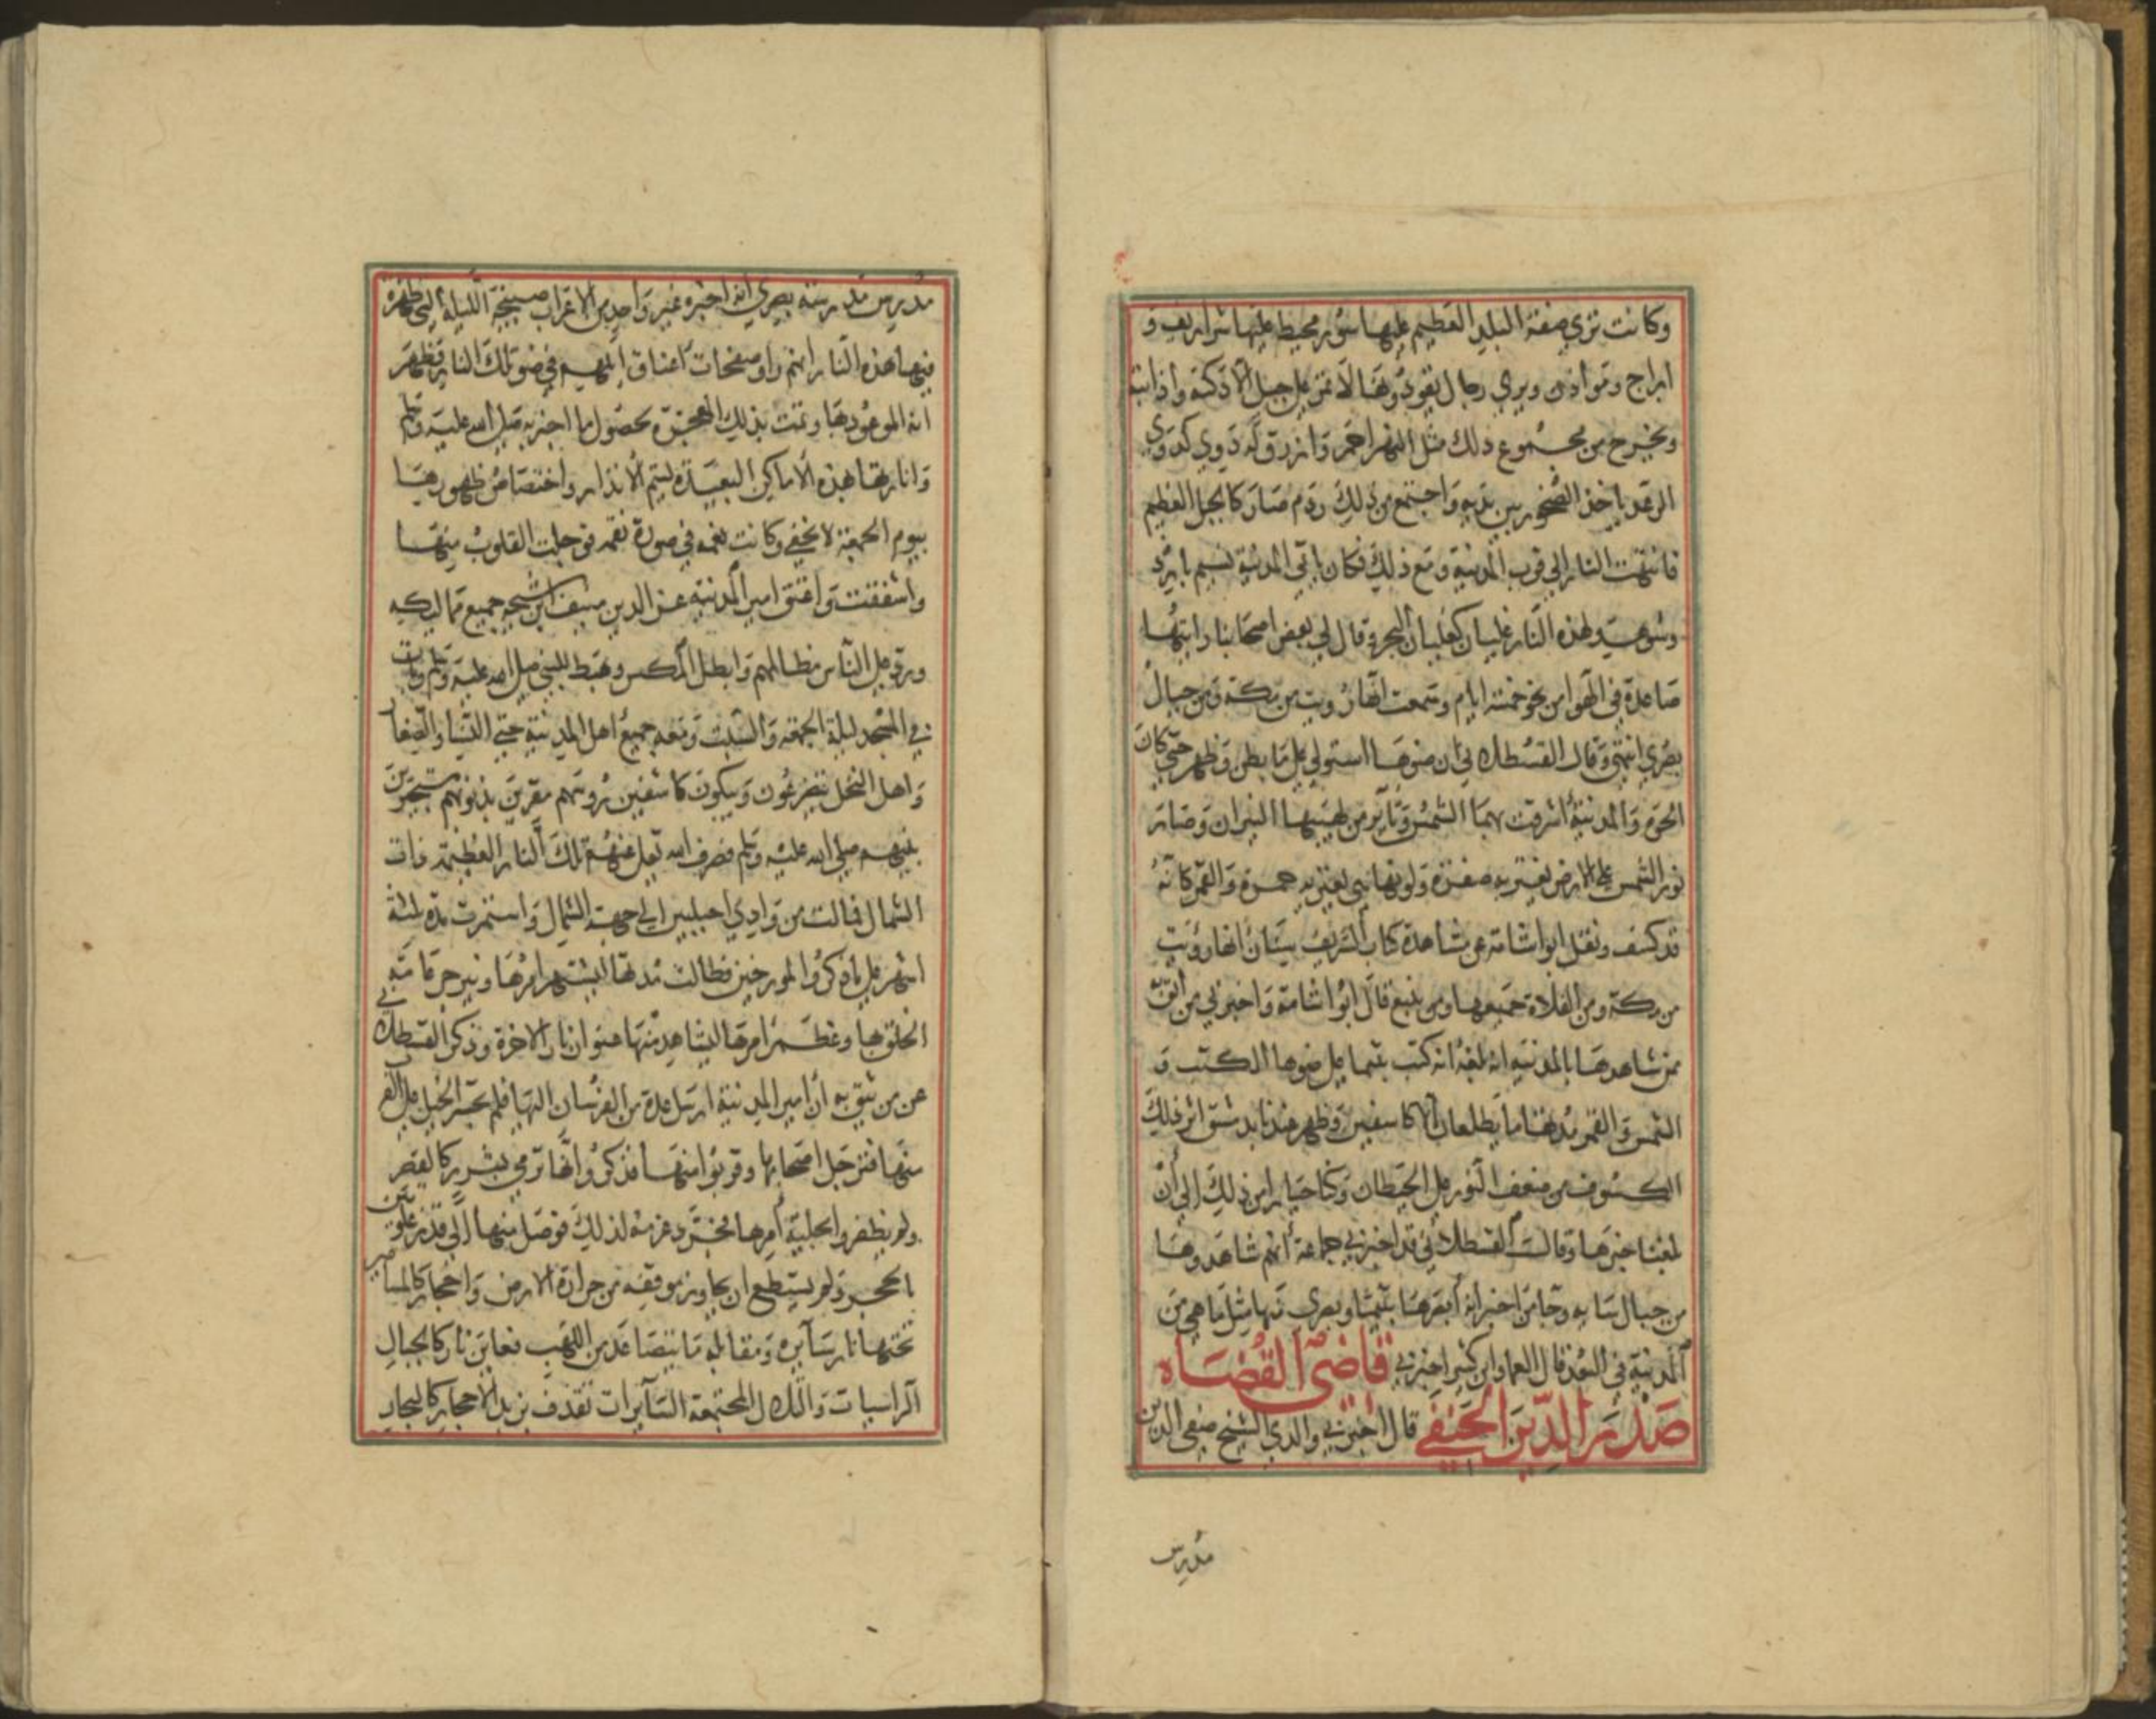 وكانت تري صفة البلد العظيم عليها سور محيط عليها شراريف و
ابراج وموادن ويري رجال يقودونها لا تمر علي جبل الا دكته واذابته
ويخرج من مجموع ذلك مثل النهر احمر وازرق له دوي كدوي
الرعد ياخذ الصخور بين يديه واجتمع من ذلك ردم صار كالجبل العظيم
فانتهت النار الي قرب المدينة ومع ذلك فكان ياتي المدينة نسيم بارد
وشوهد لهذه النار غليان كغليان البحر وقال لي بعض اصحابنا رايتها
صاعدة في الهوا من نحو خمسة ايام وسمعت انها رويت من مكة ومن جبال
بصري انتهي وقال القسطلاني ان ضوها استولي علي ما بطن وظهر حتي كان
الحرم والمدينة اشرقت بهما الشمس وتاثر من لهيبها النيران وصار
نور الشمس علي الارض يعتريه صفرة ولونها يعتريه حمرة والقمر كانه
قد كسف ونقل ابوا شامة عن مشاهدة كتاب الشريف سنان انها رويت
من مكة ومن الفلاة جميعها ومن ينبع قال ابوا شامة واخبرني من اثق
ممن شاهدها بالمدينة انه بلغه انه كتب بتيما علي ضوها الكتب و
الشمس والقمر مدتها ما يطلعان الا كاسفين وظهر عندنا بدمشق اثر ذلك
الكسوف من ضعف النور علي الحيطان وكنا حيارا من ذلك الي ان
بلغنا خبرها وقال القسطلاني قد اخبرني جماعة انهم شاهدوها
من جبال سايه وجا من اخبر انه ابصرها بتيما وبصري منها مثل ما هي من
المدينة في البعد قال العماد ابن كثير اخبرني قاضي القضاه
صدر الدين الحنفي قال اخبرني والدي الشيخ صفي الدين
مدرس
مدرس مدرسة بصري انه اخبره غير واحد من الاعراب صبيحة الليلة التي ظهرت
فيها هذه النار انهم راو صفحات اعناق ابلهم في ضو تلك النار فظهر
انه الموعود بها وتمت بذلك المعجزة بحصول ما اخبر به صلي الله عليه وسلم
وانارتها هذه الاماكن البعيدة ليتم الانذار واختصاص ظهورها
بيوم الجمعة لا يخفي وكانت نعمه في صورة نقمه فوجلت القلوب منها
واشفقت واعتق امير المدينة عز الدين منيف ابن شيحه جميع مماليكه
ورد علي الناس مظالمهم وابطل المكس وهبط للنبي صلي الله عليه وسلم وبات
في المسجد ليلة الجمعه والسبت ومعه جميع اهل المدينة حتي النسا والصغار
واهل النخل يتضرعون ويبكون كاشفين روسهم مقرين بذنوبهم مستجيرين
بنبيهم صلي الله عليه وسلم فصرف الله تعالي عنهم تلك النار العظيمة ذات
الشمال فسالت من وادي احيليين الي جهة الشمال واستمرت مدة ثلثة
اشهر علي ما ذكروا المورخين فطالت مدتها ليشتهر امرها وينزجر عامة
الخلق بها وعظم امرها ليشاهد منها عنوان نار الاخرة وذكر القسطلاني
عن من يثق به ان امير المدينة ارسل عدة من الفرسان اليها فلم تجسر الخيل علي القرب
منها فترجل اصحابها وقربوا منها فذكروا انها ترمي بشرر كالقصر
ولم يظفروا بجلية امرها فجرد عزمه لذلك فوصل منها الي قدر غلوتين
بالحجر ولم يستطع ان يجاوز موقفه من حرارة الارض واحجار كالمسامير
تحتها نار سايره ومقابله ما يتصاعد من اللهب فعاين نار كالجبال
الراسيات والتلال المجتمعة السايرات تقذف بزبد الاحجار كالبحار